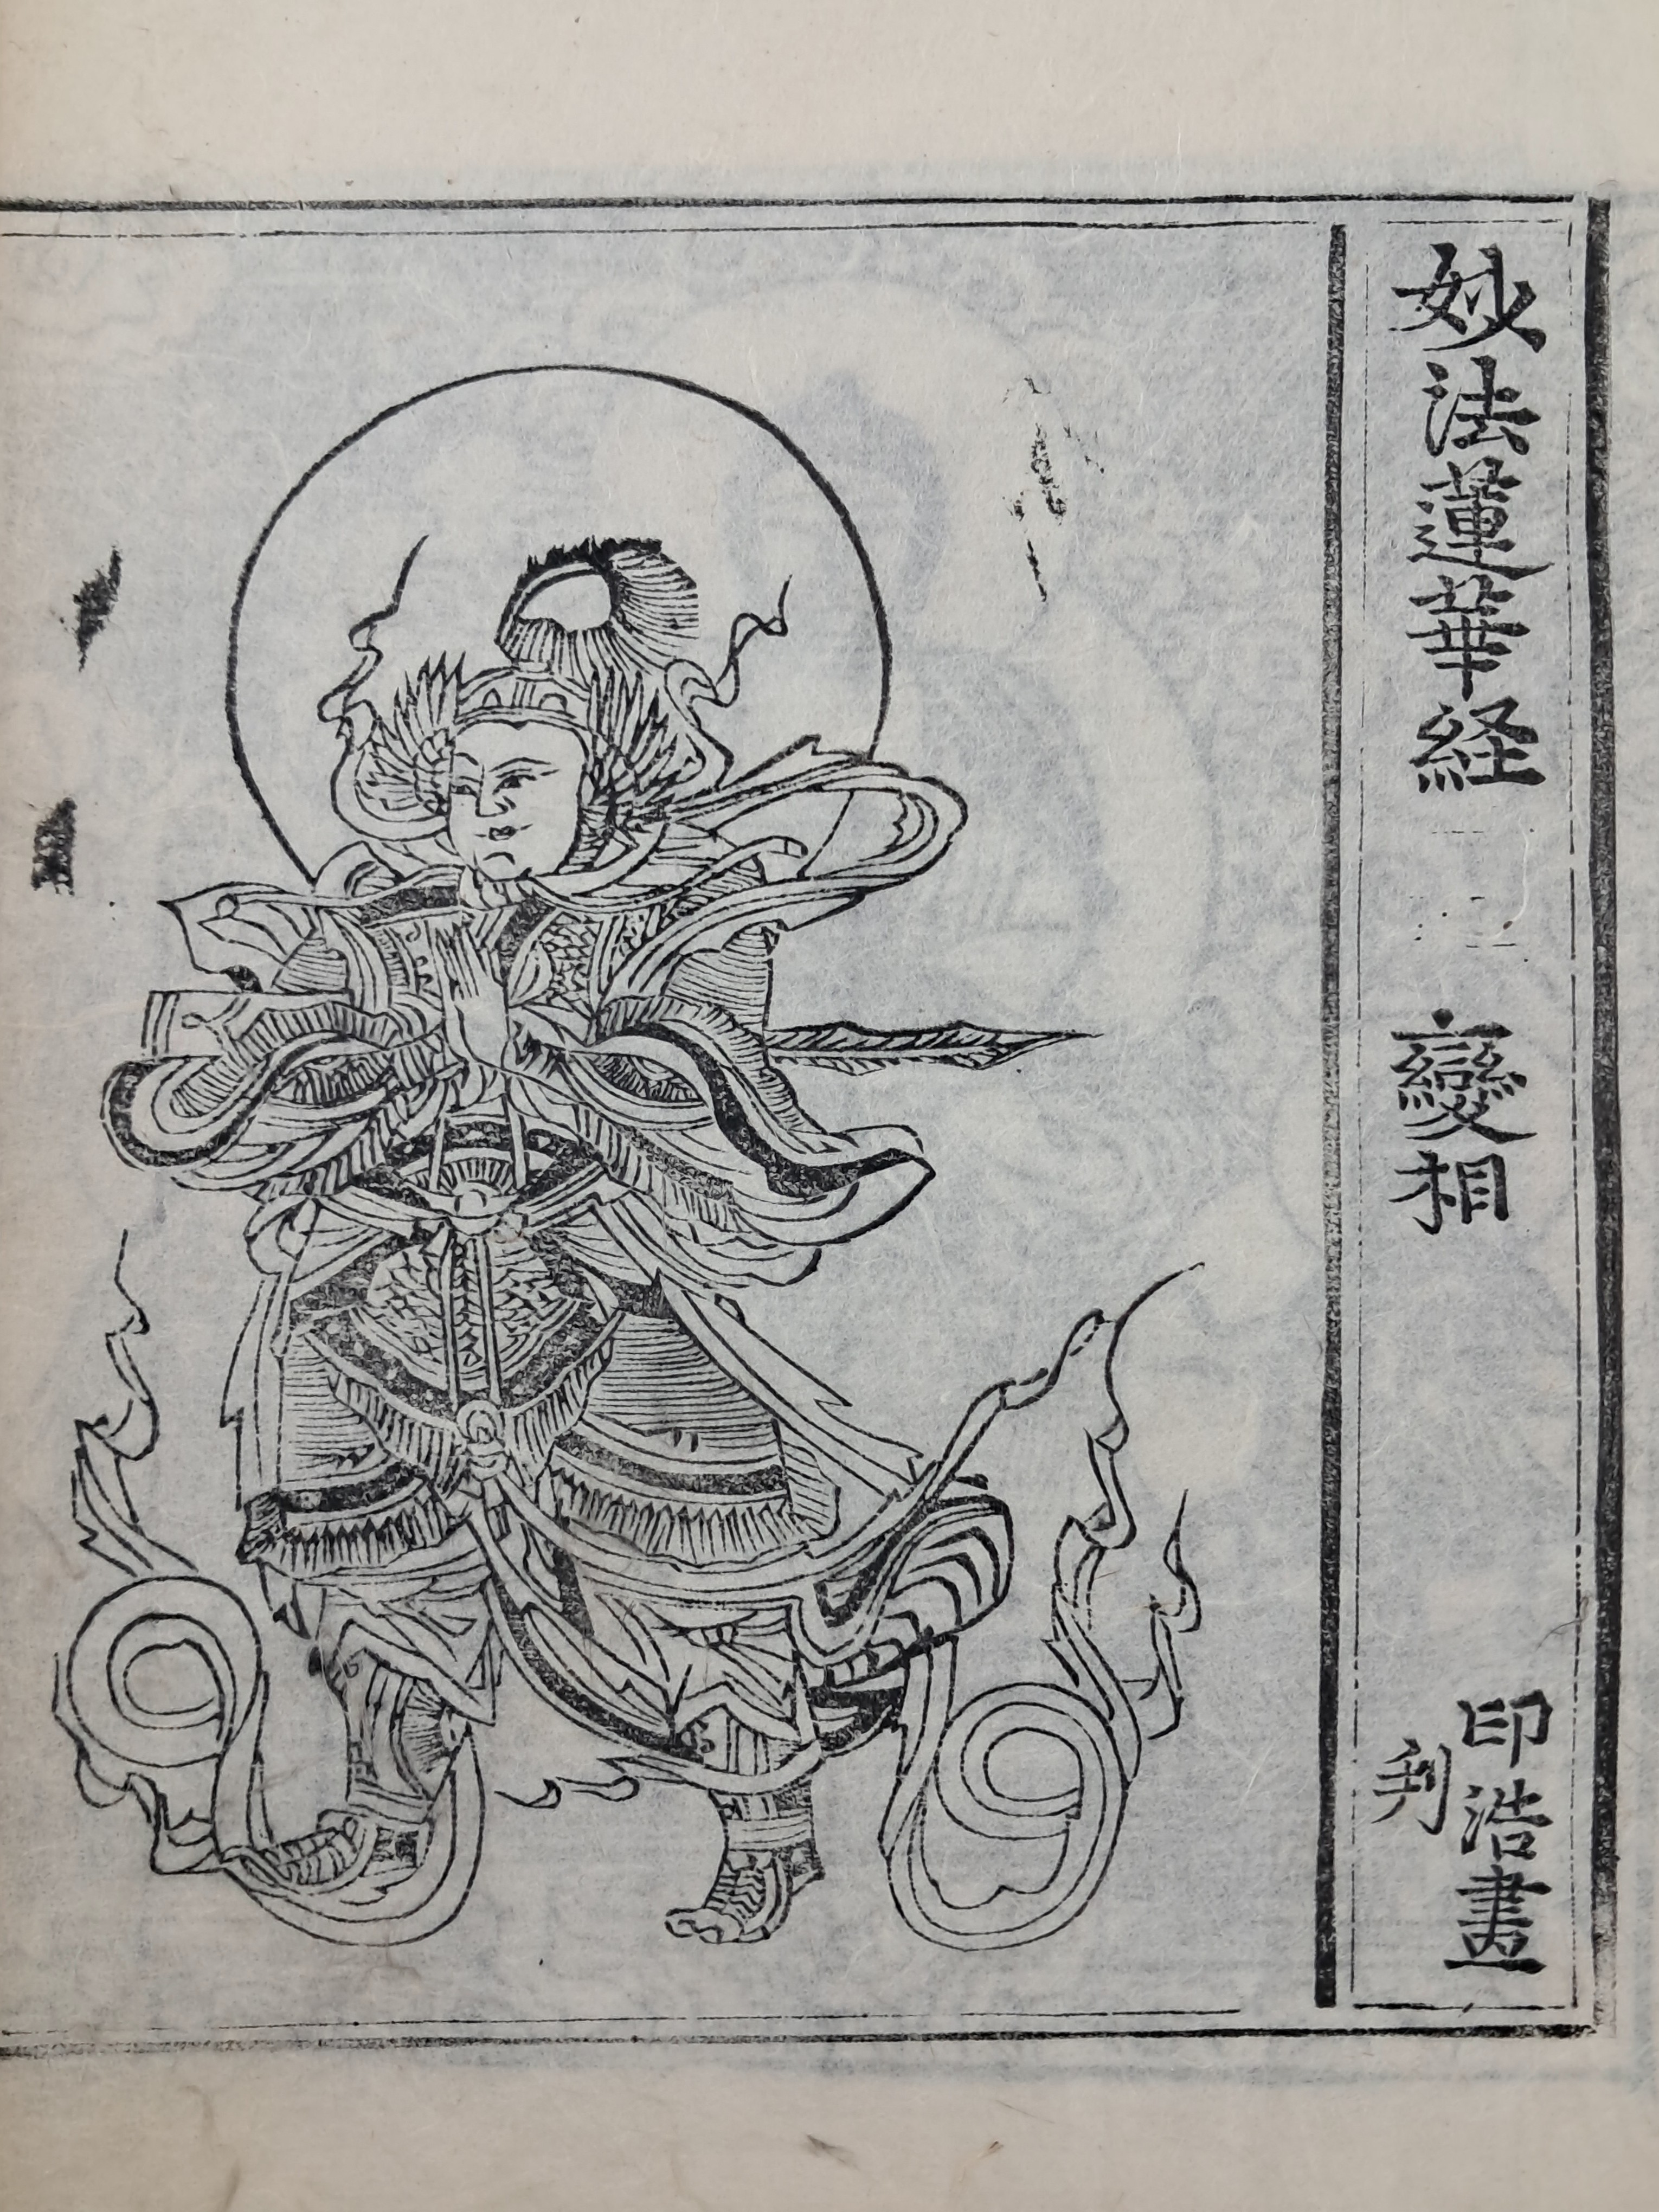 妙法蓮華経 變相 印浩畫
刋